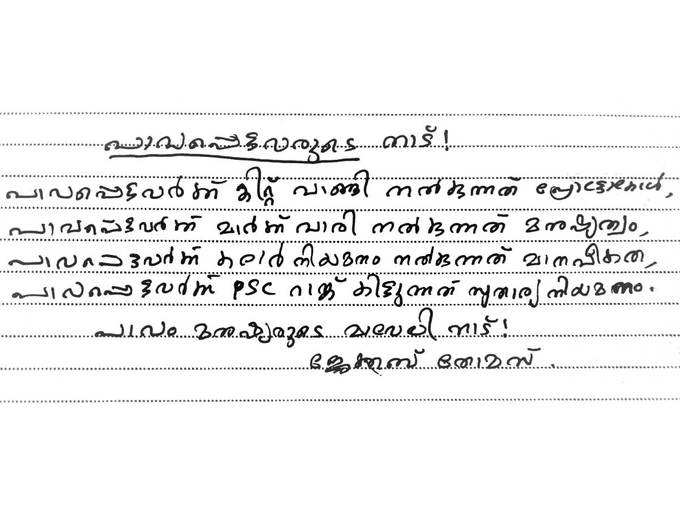 പാവപ്പെട്ടവരുടെ നാട്!
പാവപ്പെട്ടവർക്ക് കിറ്റ് വാങ്ങി നൽകുന്നത് പ്രോട്ടോകോൾ,
പാവപ്പെട്ടവർക്ക് മാർക്ക് വാരി നൽകുന്നത് മനുഷ്യത്വം,
പാവപ്പെട്ടവർക്ക് കരാർ നിയമനം നൽകുന്നത് മാനുഷികത,
പാവപ്പെട്ടവർക്ക് PSC റാങ്ക് കിട്ടുന്നത് സുതാര്യ നിയമനം.
പാവം മനുഷ്യരുടെ മാവേലി നാട്!
ജേക്കബ് തോമസ്.